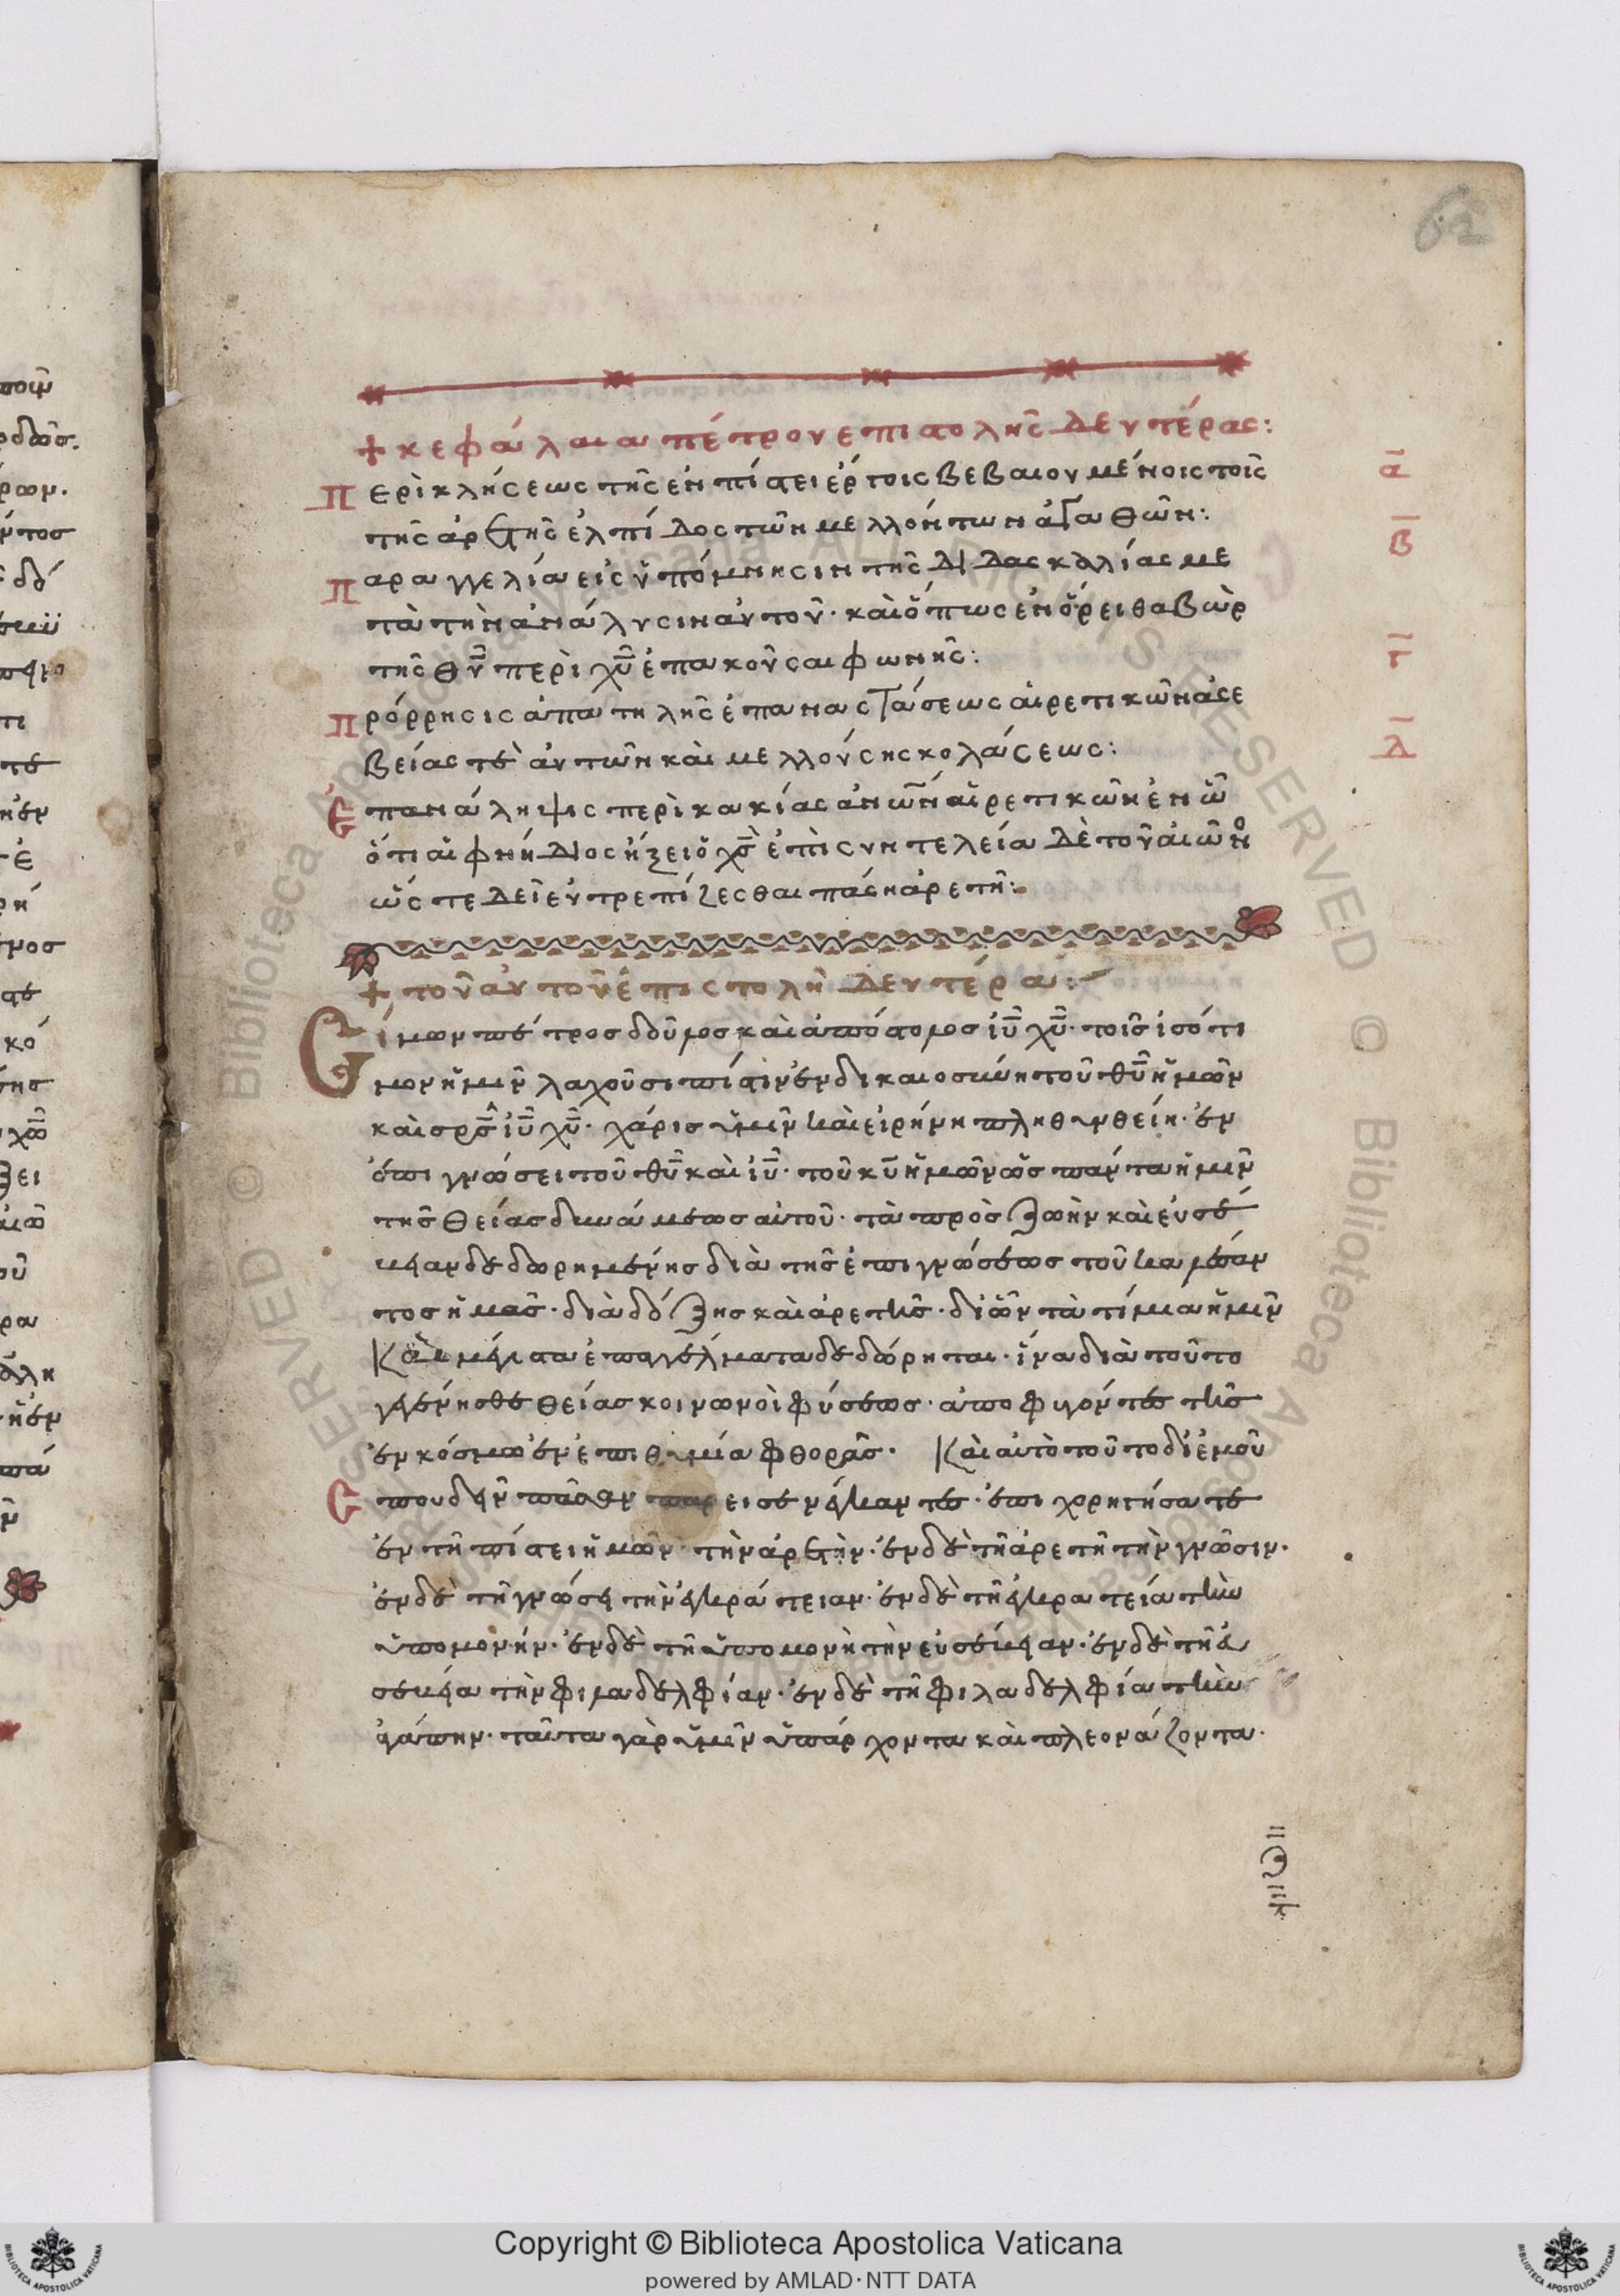 62
+ κεφάλαια πέτρου ἐπιστολῆς Δευτέρας:
Περὶ κλήσεως τῆς ἐν πίστει ἔργοις βεβαιουμένοις τοῖς
ᾱ
τῆς ἀρετῆς ἐλπίδος τῶν μελλόντων ἀγαθῶν:
β̄
Παραγγελία εἰς ὑπόμνησιν τῆς διδασκαλίας με
τὰ τὴν ἀνάλυσιν αὐτοῦ· καὶ ὅπως ἐν ὄρει θαβὼρ
τῆς θυ̅ περὶ χυ̅ ἐπακοῦσαι φωνῆς:
γ̄
Πρόρρησις ἀπατηλῆς ἐπαναστάσεως αἱρετικῶν ἀσε
βείας τὲ αὐτῶν καὶ μελλούσης κολάσεως:
δ̄
Ἐπανάληψις περὶ κακίας ἀνω̅ν αἱρετικῶν ἐν ᾧ
ὅτι αἰφνήδιος ἥξει ὁ χσ̅ ἐπὶ συντελεία δὲ τοῦ αἰῶνο
ὥς τε δεῖ εὐτρεπίζεσθαι πάση ἀρετῆ:
+ τοῦ αὐτοῦ ἐπιστολὴ Δευτέρα:
Σίμων πέτρος δοῦλος καὶ ἀπόστολος ἰυ̅ χυ̅· τοῖς ἰσότι
μον ἡμῖν λαχοῦσι πίστιν ἐν δικαιοσύνη τοῦ θυ̅ ἡμῶν
καὶ σρς̅ ἰυ̅ χυ̅· χάρις ὑμῖν καὶ εἰρήνη πληθυνθείη· ἐν
ἐπιγνώσει τοῦ θυ̅ καὶ ἰυ̅· τοῦ κυ̅ ἡμῶν ὡς πάντα ἡμῖν
τῆς θείας δυνάμεως αὐτοῦ· τὰ πρὸς ζωὴν καὶ εὐσέ
βειαν δεδωρημένης διὰ τῆς ἐπιγνώσεως τοῦ καλέσαν
τος ἡμᾶς· διὰ δόξης καὶ ἀρετῆς· δι ὧν τὰ τίμια ἡμῖν
Καὶ μέγιστα ἐπαγέλματα δεδώρηται· ἵνα διὰ τοῦτο
γένησθε θείας κοινωνοὶ φύσεως· ἀποφυγόντες τῆς
ἐν κόσμω ἐν ἐπιθυμία φθορᾶς· Καὶ αὐτὸ τοῦτο δὲ ἐμοῦ
Σπουδὴν πᾶσαν παρεισενέγκαντες· ἐπιχορηγήσατε
ἐν τῆ πίστει ἡμῶν· τὴν ἀρετὴν· ἐν δὲ τῆ ἀρετῆ τὴν γνῶσιν·
ἐν δὲ τῆ γνώσει τὴν ἐγκράτειαν· ἐν δὲ τῆ ἐγκρατεία τὴν
ὑπομονήν· ἐν δὲ τῆ ὑπομονὴ τὴν εὐσέβειαν· ἐν δὲ τῆ ἐυ
σεβεία τὴν φιλαδελφίαν· ἐν δὲ τῆ φιλαδελφία τὴν
ἀγάπην· ταῦτα γὰρ ὑμῖν ὑπάρχοντα καὶ πλεονάζοντα·
Copyright © Biblioteca Apostolica Vaticana
powered by AMLAD·NTT DATA